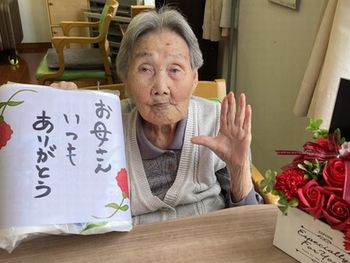 お母さん
いつも
ありがとう
Especially
For You